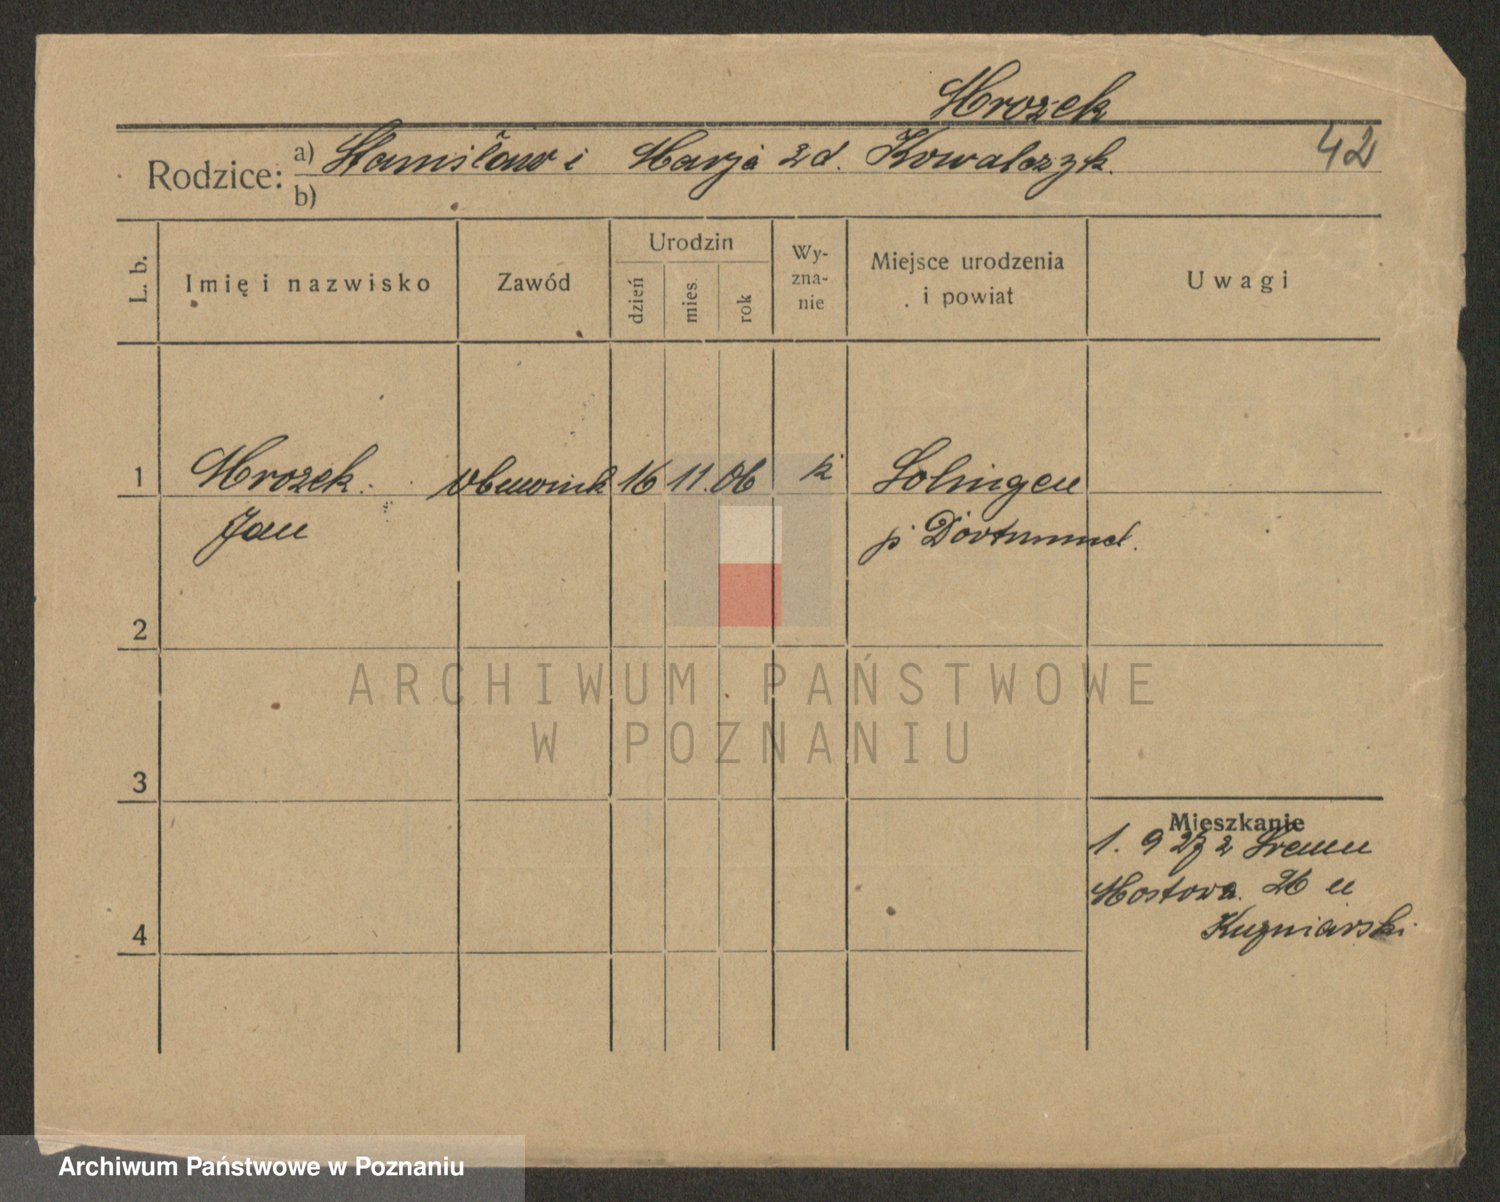 Mrozek
42
Rodzice: a) Stanisław i Marja zd. Kowalczyk.
b)
L. b.
Imię i nazwisko
Zawód
Urodzin
dzień
mies.
rok
Wy-
zna-
nie
Miejsce urodzenia
i powiat
Uwagi
1 Mrozek 16 11. 06 k Solingen
Jan p Dortmund.
2
3
4
Mieszkanie
1. 9 Śrem
Mostowa 26 u
Kuzniarski
ARCHIWUM PAŃSTWOWE
W POZNANIU
Archiwum Państwowe w Poznaniu